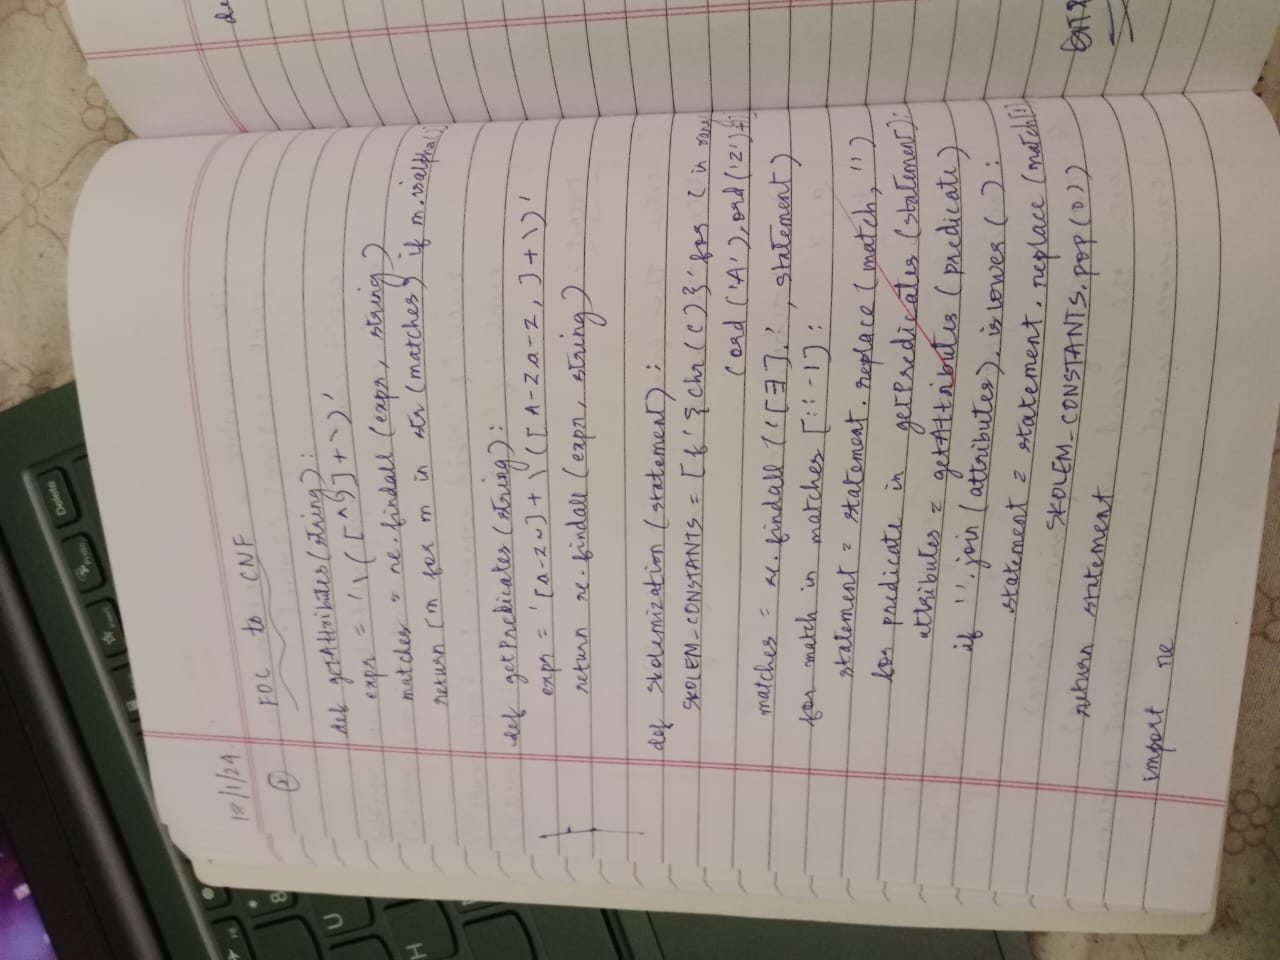 18/1/24
FOL to CNF
def getAttributes(string):
expr = '\([^)]+\)'
matches = re.findall(expr, string)
return [m for m in str(matches) if m.isalpha()]
def getPredicates(string):
expr = '[a-z~]+\([A-Za-z,]+\)'
return re.findall(expr, string)
def Skolemization(statement):
SKOLEM_CONSTANTS = [f'{chr(c)}' for c in range
(ord('A'), ord('Z')+1)]
matches = re.findall('[∃].', statement)
for match in matches[::-1]:
statement = statement.replace(match, '')
for predicate in getPredicates(statement):
attributes = getAttributes(predicate)
if ''.join(attributes).islower():
statement = statement.replace(match[1],
SKOLEM_CONSTANTS.pop(0))
return statement
import re
de
Delete
U
H
8